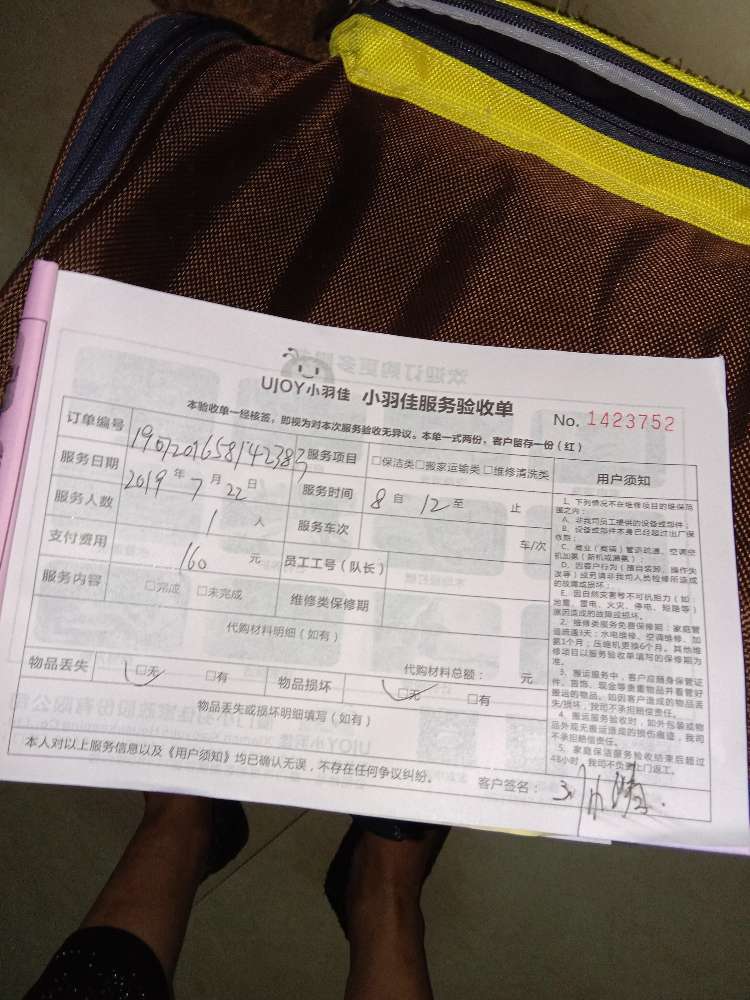 UJOY小羽佳 小羽佳服务验收单
本验收单一经核签，即视为对本次服务验收无异议。本单一式两份，客户留存一份（红）
No. 1423752
订单编号 服务项目 □保洁类□搬家运输类 □维修清洗类
服务日期 2019 年 7 月 22 日 服务时间 8 自 12 至 止
服务人数 1 人 服务车次 车/次
支付费用 160 元 员工工号（队长）
服务内容 □完成 □未完成 维修类保修期
代购材料明细（如有）
代购材料总额： 元
物品丢失 □无 □有 物品损坏 □无 □有
物品丢失或损坏明细填写（如有）
本人对以上服务信息以及《用户须知》均已确认无误，不存在任何争议纠纷。 客户签名：
用户须知
1、下列情况不在维修项目的维保范
围之内：
A、非我司员工提供的设备或部件；
B、设备或部件本身已经超过出厂保
修期；
C、商业（商铺）管道疏通、空调空
机加氟（新机或漏氟）；
D、因客户行为（擅自装卸、操作失
误等）或另请非我司人员检修所造成
的故障或损坏；
E、因自然灾害等不可抗拒力（如：
地震、雷电、火灾、停电、短路等）
原因造成的故障或损坏。
2、维修类服务免费保修期：家庭管
道疏通3天；水电维修、空调维修、加
氟1个月；压缩机更换6个月。其他维
修项目以服务验收单填写的保修期为
准。
3、搬运服务中，客户应随身保管证
件、首饰、现金等贵重物品并看管好
搬运的物品。如因客户造成的物品丢
失/损坏，我司不承担赔偿责任。
4、搬运服务验收时，如外包装或物
品外观无搬运造成的损伤痕迹，我司
不承担赔偿责任。
5、家庭保洁服务验收结束后超过
48小时，我司不负责上门返工。